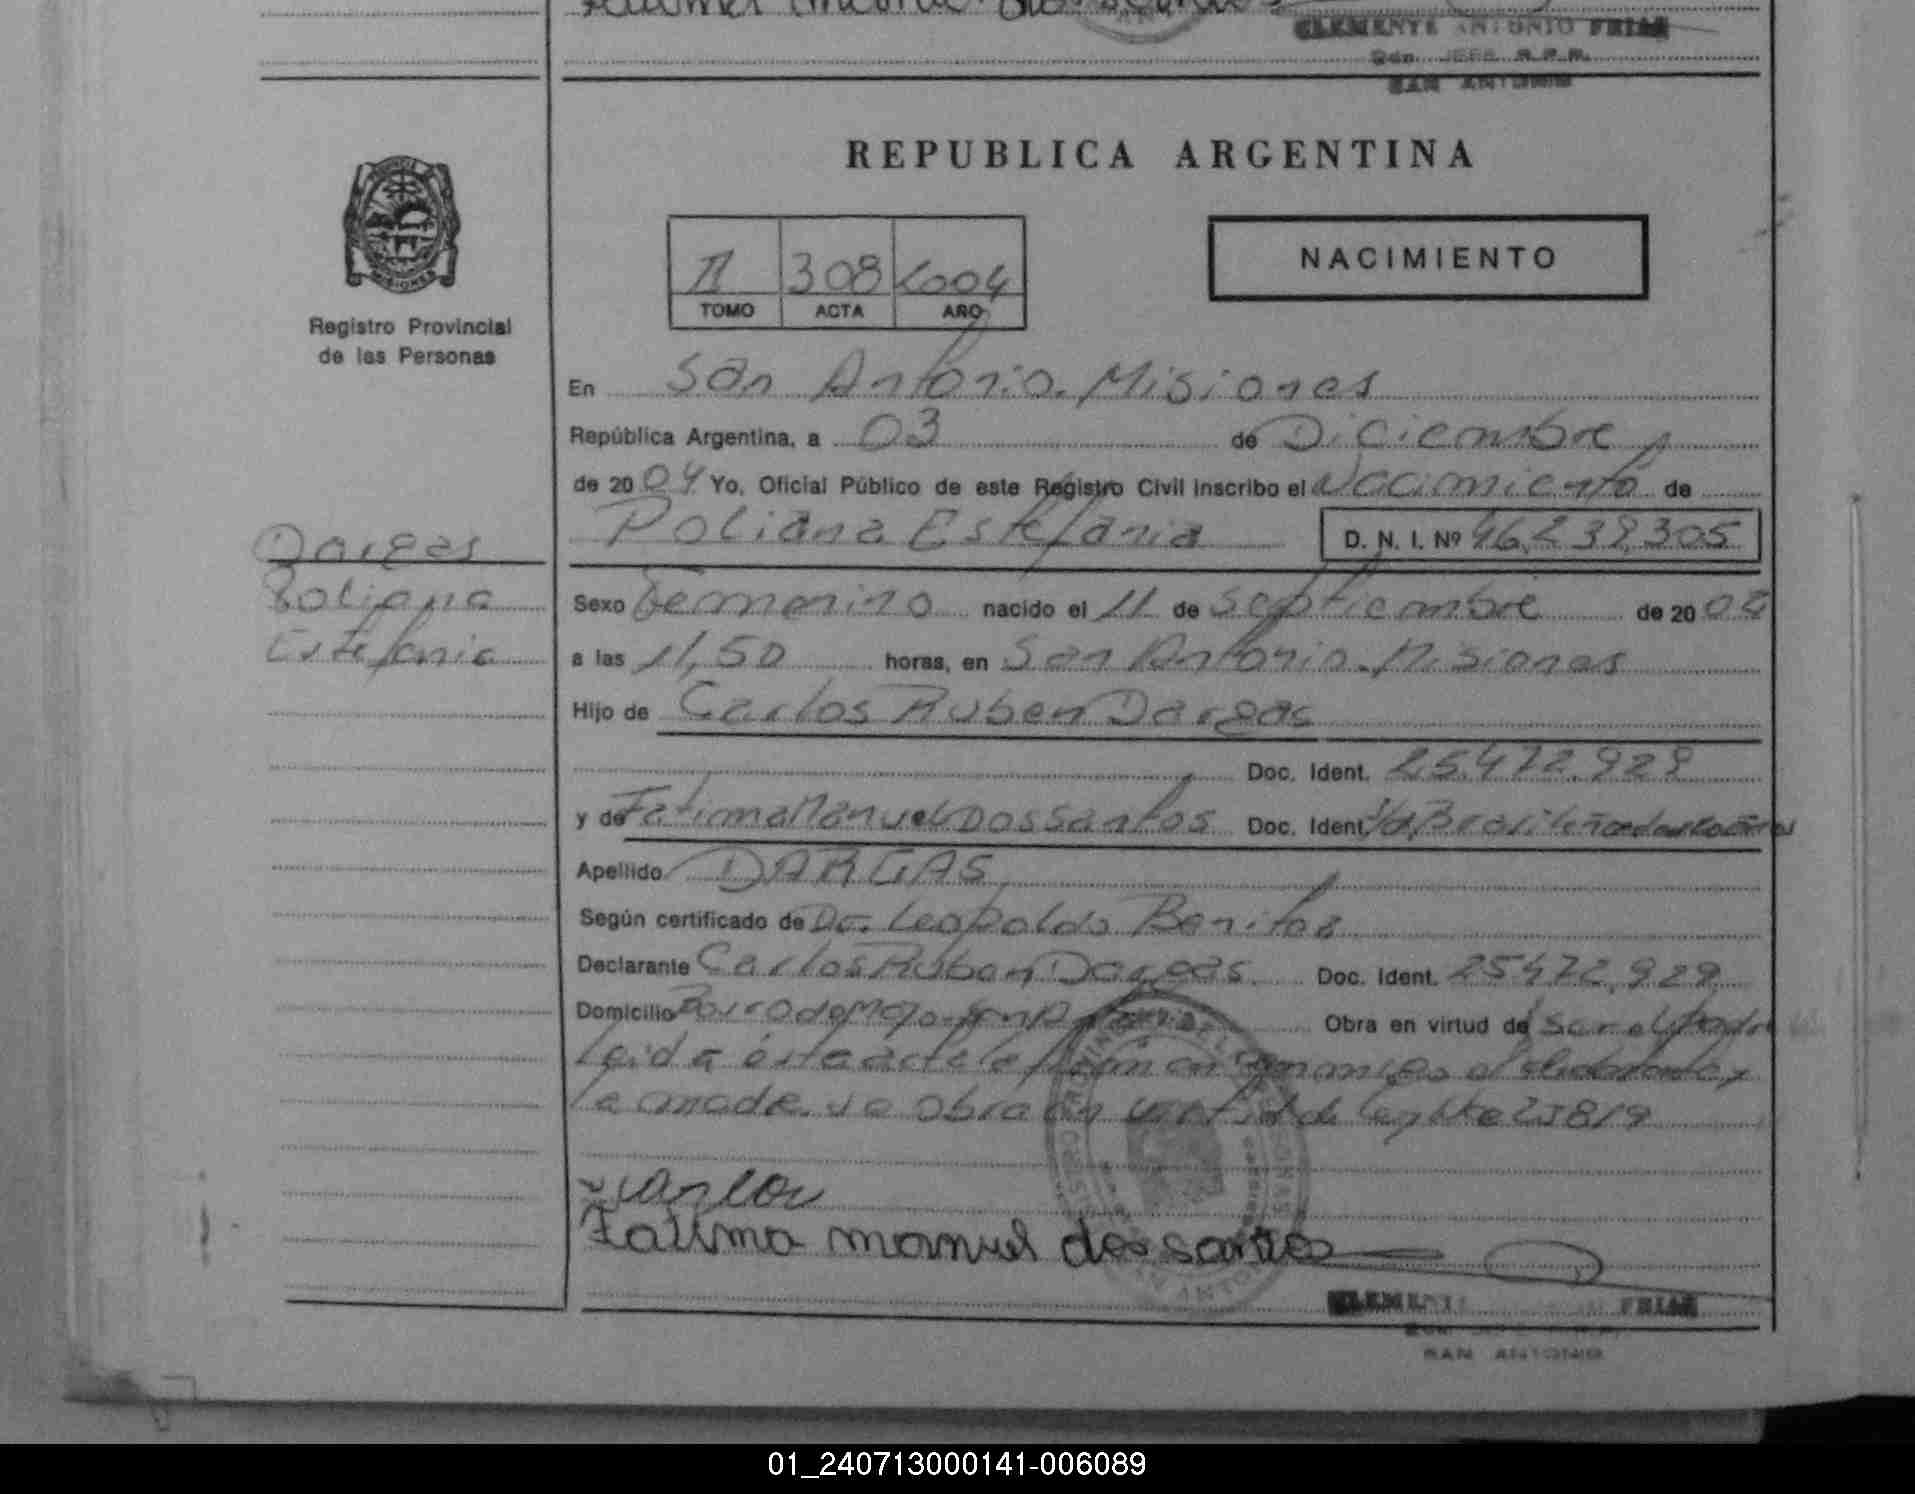 CLEMENTE ANTONIO FRIAS
SAN ANTONIO
REPUBLICA ARGENTINA
NACIMIENTO
II 308 2004
TOMO ACTA AÑO
PROVINCIA
MISIONES
Registro Provincial
de las Personas
En San Antonio. Misiones
República Argentina, a 03 de Diciembre
de 2004 Yo, Oficial Público de este Registro Civil inscribo el Nacimiento de
Poliana Estefania D. N. I. Nº 46.239.305
Dargas
Poliana
Estefania
Sexo Femenino nacido el 11 de Septiembre de 20
a las 11,50 horas, en San Antonio. Misiones
Hijo de Carlos Ruben Dargas
Doc. Ident. 25.472.929
y de Fatima Manuel Dos Santos Doc. Ident. Brasileña
Apellido DARGAS
Según certificado de Dr. Leopoldo Benitez
Declarante Carlos Ruben Dargas Doc. Ident. 25.472.929
Domicilio Obra en virtud de Ser el Padre
Leida el acta la firman conmigo el declarante y
la madre. se obra en virtud de ley
Carlos
Fatima manuel dos santos
CLEMENTE FRIAS
SAN ANTONIO
01_240713000141-006089